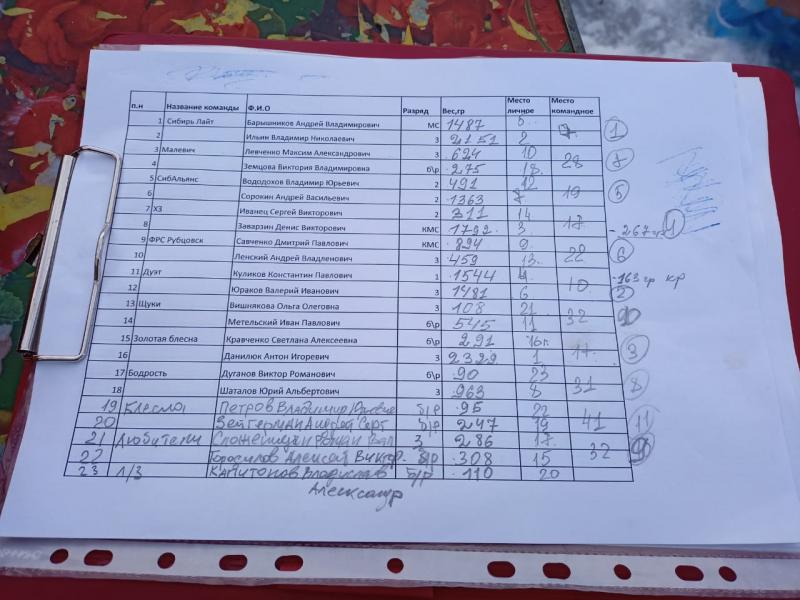 п.н Название команды Ф.И.О Разряд Вес,гр Место личное Место командное
1 Сибирь Лайт Барышников Андрей Владимирович МС 1487 5 7. 1
2 Ильин Владимир Николаевич 3 2151 2
3 Малевич Левченко Максим Александрович 3 624 10 28 7
4 Земцова Виктория Владимировна б\р 275 18.
5 СибАльянс Вододохов Владимир Юрьевич 2 491 12 19 5
6 Сорокин Андрей Васильевич 2 1363 7
7 ХЗ Иванец Сергей Викторович 2 311 14 17
8 Заварзин Денис Викторович КМС 1792. 3.
9 ФРС Рубцовск Савченко Дмитрий Павлович КМС 894 9. 22 6
- 267 гр
10 Ленский Андрей Владленович 3 459 13.
11 Дуэт Куликов Константин Павлович 1 1544 4. 10. 2
-163 гр кр
12 Юраков Валерий Иванович 3 1481 6
13 Щуки Вишнякова Ольга Олеговна 3 108 21 32 10
14 Метельский Иван Павлович б\р 545 11
15 Золотая блесна Кравченко Светлана Алексеевна б\р 291 16 17. 3
16 Данилюк Антон Игоревич 3 2329 1
17 Бодрость Дуганов Виктор Романович б\р 90 23 31 8
18 Шаталов Юрий Альбертович 3 963 8
19 Блесна Петров Владимир б/р 95 22 41 11
20 Андрей б/р 247 19
21 Любители Роман 3 286 17. 32 9
22 Алексей Виктор. б/р 308 15
23 Л/З Капитонов Владислав б/р 110 20
Александр